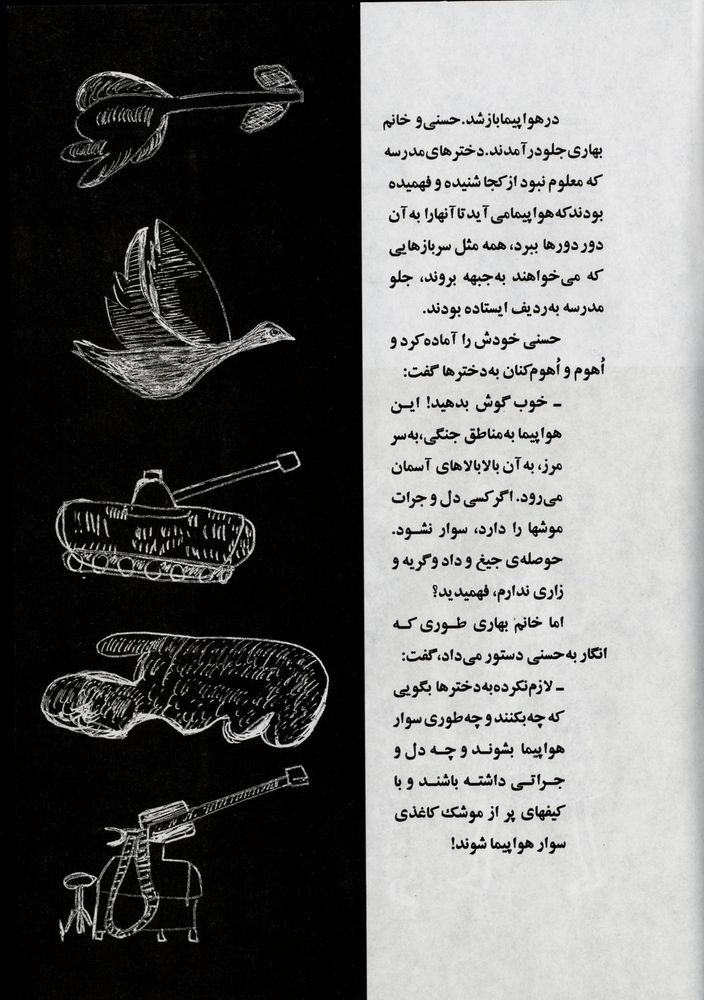 در هواپیما باز شد. حسنی و خانم
بهاری جلو درآمدند. دخترهای مدرسه
که معلوم نبود از کجا شنیده و فهمیده
بودند که هواپیما می‌آید تا آنها را به آن
دور دورها ببرد، همه مثل سربازهایی
که می‌خواهند به جبهه بروند، جلو
مدرسه به ردیف ایستاده بودند.
حسنی خودش را آماده کرد و
اُهوم و اُهوم‌کنان به دخترها گفت:
ـ خوب گوش بدهید! این
هواپیما به مناطق جنگی، به سر
مرز، به آن بالابالاهای آسمان
می‌رود. اگر کسی دل و جرات
موشها را دارد، سوار نشود.
حوصله‌ی جیغ و داد و گریه و
زاری ندارم، فهمیدید؟
اما خانم بهاری طوری که
انگار به حسنی دستور می‌داد، گفت:
ـ لازم نکرده به دخترها بگویی
که چه بکنند و چه طوری سوار
هواپیما بشوند و چه دل و
جراتی داشته باشند و با
کیفهای پر از موشک کاغذی
سوار هواپیما شوند!